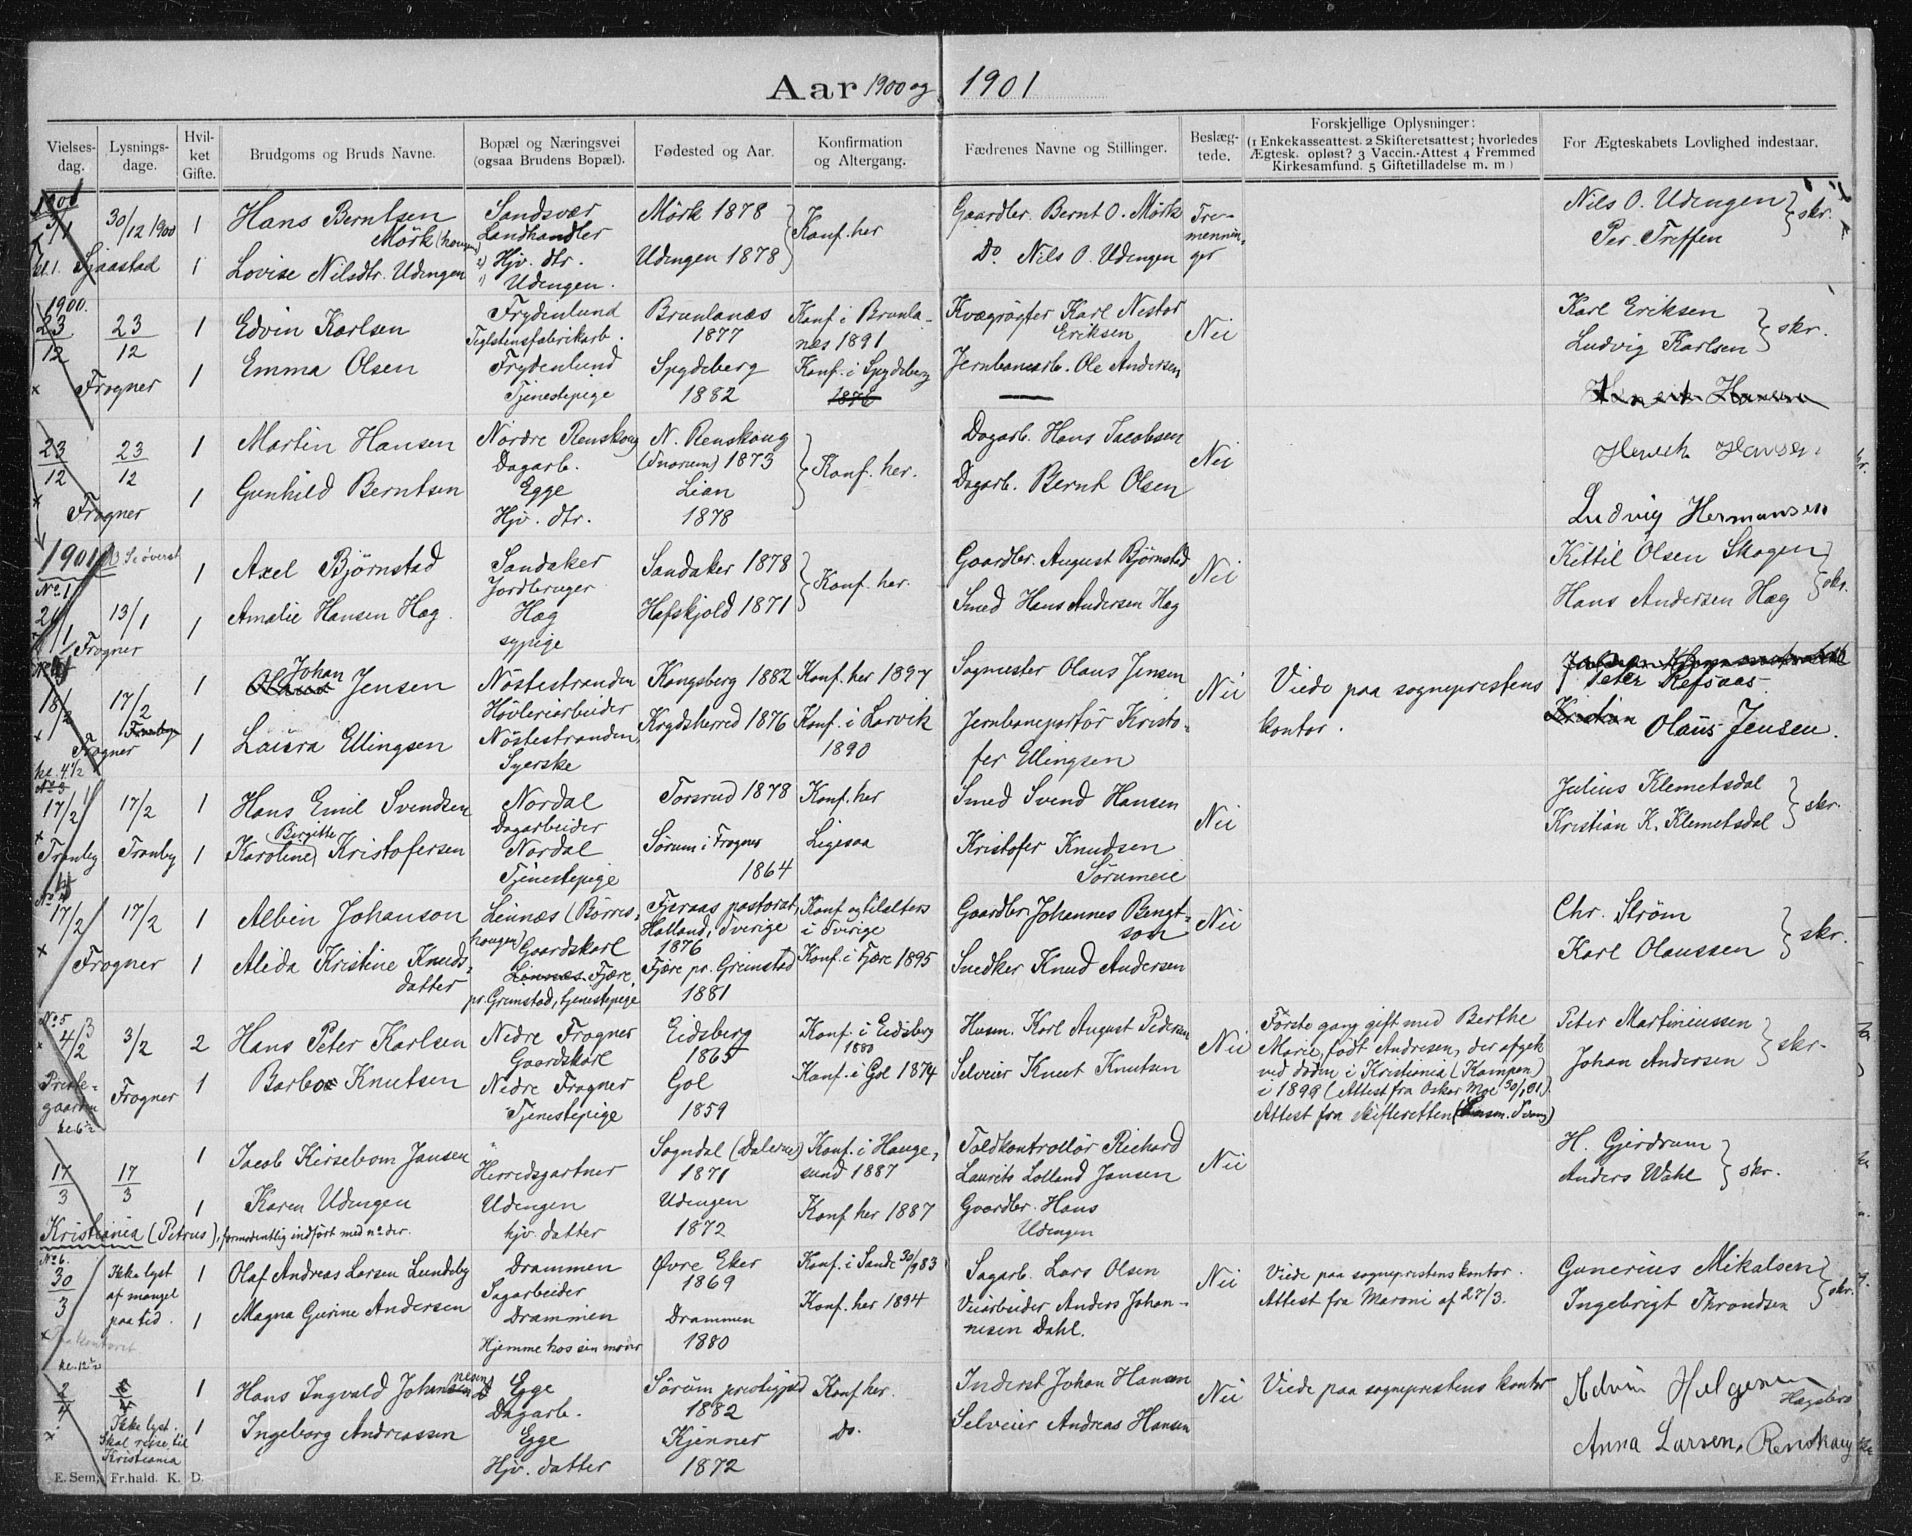 Aar 1900 og 1901
Vielses-dag. Lysnings-dage. Hvil-ket Gifte. Brudgoms og Bruds Navne. Bopæl og Næringsvei (ogsaa Brudens Bopæl). Fødested og Aar. Konfirmation og Altergang. Fædrenes Navne og Stillinger. Beslæg-tede. Forskjellige Oplysninger: (1 Enkekasseattest. 2 Skifteretsattest; hvorledes Ægtesk. opløst? 3 Vaccin.-Attest 4 Fremmed Kirkesamfund. 5 Giftetilladelse m. m.) For Ægteskabets Lovlighed indestaar.
1901
3/1 30/12 1900 1 Hans Berntsen Sandsvær Mörk 1878 Konf. her Gaardbr. Bernt O. Mörk Tre- Nils O. Udengen
Mörk Landhandler mennin- Per. Treffen skr.
kl. 1. Sjaastad 1 Lovise Nilsdtr. Udengen Hjv. dtr. Udengen 1878 Do. Nils O. Udengen ger
Udengen.
1900.
23/12 23/12 1 Edvin Karlsen Frydenlund Brunlanæs Konf. i Brunla- Kvægrögter Karl Nestor Nei Karl Eriksen
Teglstensfabrikarb. 1877 nes 1891 Eriksen Ludvig Karlsen skr.
x Frogner 1 Emma Olsen Frydenlund Spydeberg Konf. i Spydeberg Jernbanearb. Ole Andersen
Tjenestepige 1882 1876
23/12 23/12 1 Martin Hansen Nordre Renskoug N. Renskoug Konf. her. Dagarb. Hans Jacobsen Nei Henrik Hansen
Dagarb. 1873
x Frogner 1 Gunhild Berntsen Egge Lian Dagarb. Bernt Olsen Ludvig Hermansen
Hjv. dtr. 1878
1901
No 1 1 Axel Björnstad Sandaker Sandaker 1878 Konf. her. Gaardbr. August Björnstad Nei Kittil Olsen Skogen
Jordbruger
13/1 1 Amalie Hansen Hæg Hæg Hafskjold 1871 Smed Hans Andersen Hæg Hans Andersen Hæg skr.
Frogner sypige
18/2 17/2 1 Johan Jensen Nöstestranden Kongsberg 1882 Konf. her 1897 Sagmester Olaus Jensen Nei Viede paa sogneprestens Peter Refsaas
Hövleriarbeider kontor.
x Frogner 1 Laura Ellingsen Nöstestranden, Krydsherred 1876 Konf. i Larvik Jernbaneportör Kristo- Kristian Olaus Jensen.
kl. 4 1/2 Syerske 1890 fer Ellingsen
No 3
17/2 17/2 1 Hans Emil Svendsen Nordal Torsrud 1878 Konf. her Smed Svend Hansen Nei Julius Klemetsdal
Dagarbeider
x Tranby Tranby 1 Karoline (Birgitte) Kristofersen Nordal Sörum i Frogner Ligesaa Kristofer Knudsen Kristian K. Klemetsdal skr.
Tjenestepige 1864 Sörumeie
No 4
17/2 17/2 1 Albin Johanson Linnæs (Börres- Fjæraas pastorat, Konf. og tilalters Gaardbr. Johannes Bengt- Nei Chr. Ström
haugen) Gaardskarl Halland, Sverige 1876 i Sverige son
x Frogner 1 Alida Kristine Knuds- Linnæs Fjære, Fjære pr. Grimstad Konf. i Fjære 1895 Snedker Knud Andersen Karl Olaussen skr.
datter pr. Grimstad, tjenestepige 1881
No 5
4/2 3/2 2 Hans Peter Karlsen Nedre Frogner Eidsberg Konf. i Eidsberg Husm. Karl August Pedersen Nei Förste gang gift med Berthe Peter Martiniussen
Gaardskarl 1865 1880 Marie, födt Andresen, der afgik
Preste- Frogner 1 Barbo Knutsen Nedre Frogner Gol Konf. i Gol 1874 Selveier Knut Knutsen ved döden i Kristiania (Kampen) Johan Andersen skr.
gaarden Tjenestepige 1859 i 1899 (Attest fra Oskar Moe 30/1 01).
kl. 6 1/2 Attest fra skifteretten
17/3 17/3 1 Jacob Kirsebom Jansen Herredsgartner Sogndal (Dalerne) Konf. i Hauge- Toldkontrollör Richard Nei H. Gjerdrum
1871 sund 1887 Laurits Lolland Jansen Anders Wahl skr.
1 Karen Udengen Udengen Udengen Konf. her 1887 Gaardbr. Hans
hjv. datter 1872 Udengen
Kristiania (Petrus), formodentlig indfört med no der.
No 6.
30/3 Ikke lyst 1 Olaf Andreas Larsen Lundeby Drammen Övre Eker Konf. i Sande 30/9 83 Sagarb. Lars Olsen Nei Viede paa sogneprestens kontor. Gunerius Mikalsen
af mangel Sagarbeider 1869 Attest fra Maroni af 27/3. skr.
paa tid. 1 Magna Gurine Andersen Drammen Drammen Konf. her 1894 Veiarbeider Anders Johan- Ingebrigt Throndsen
kl. 12 1/2 Hjemme hos sin moder 1880 nesen Dahl.
2/4 1 Hans Ingvald Johannesen Egge Sörum prestegjeld Konf. her. Inderst Johan Hansen Nei Viede paa sogneprestens kontor
Dagarb. 1882
x Ikke lyst. 1 Ingeborg Andreassen Egge Kjenner Do. Selveier Andreas Hansen Anna Larsen, Renskaug
Skal reise til Hjv. datter 1872
Kristiania
E. Sem, Fr.hald. K. D.